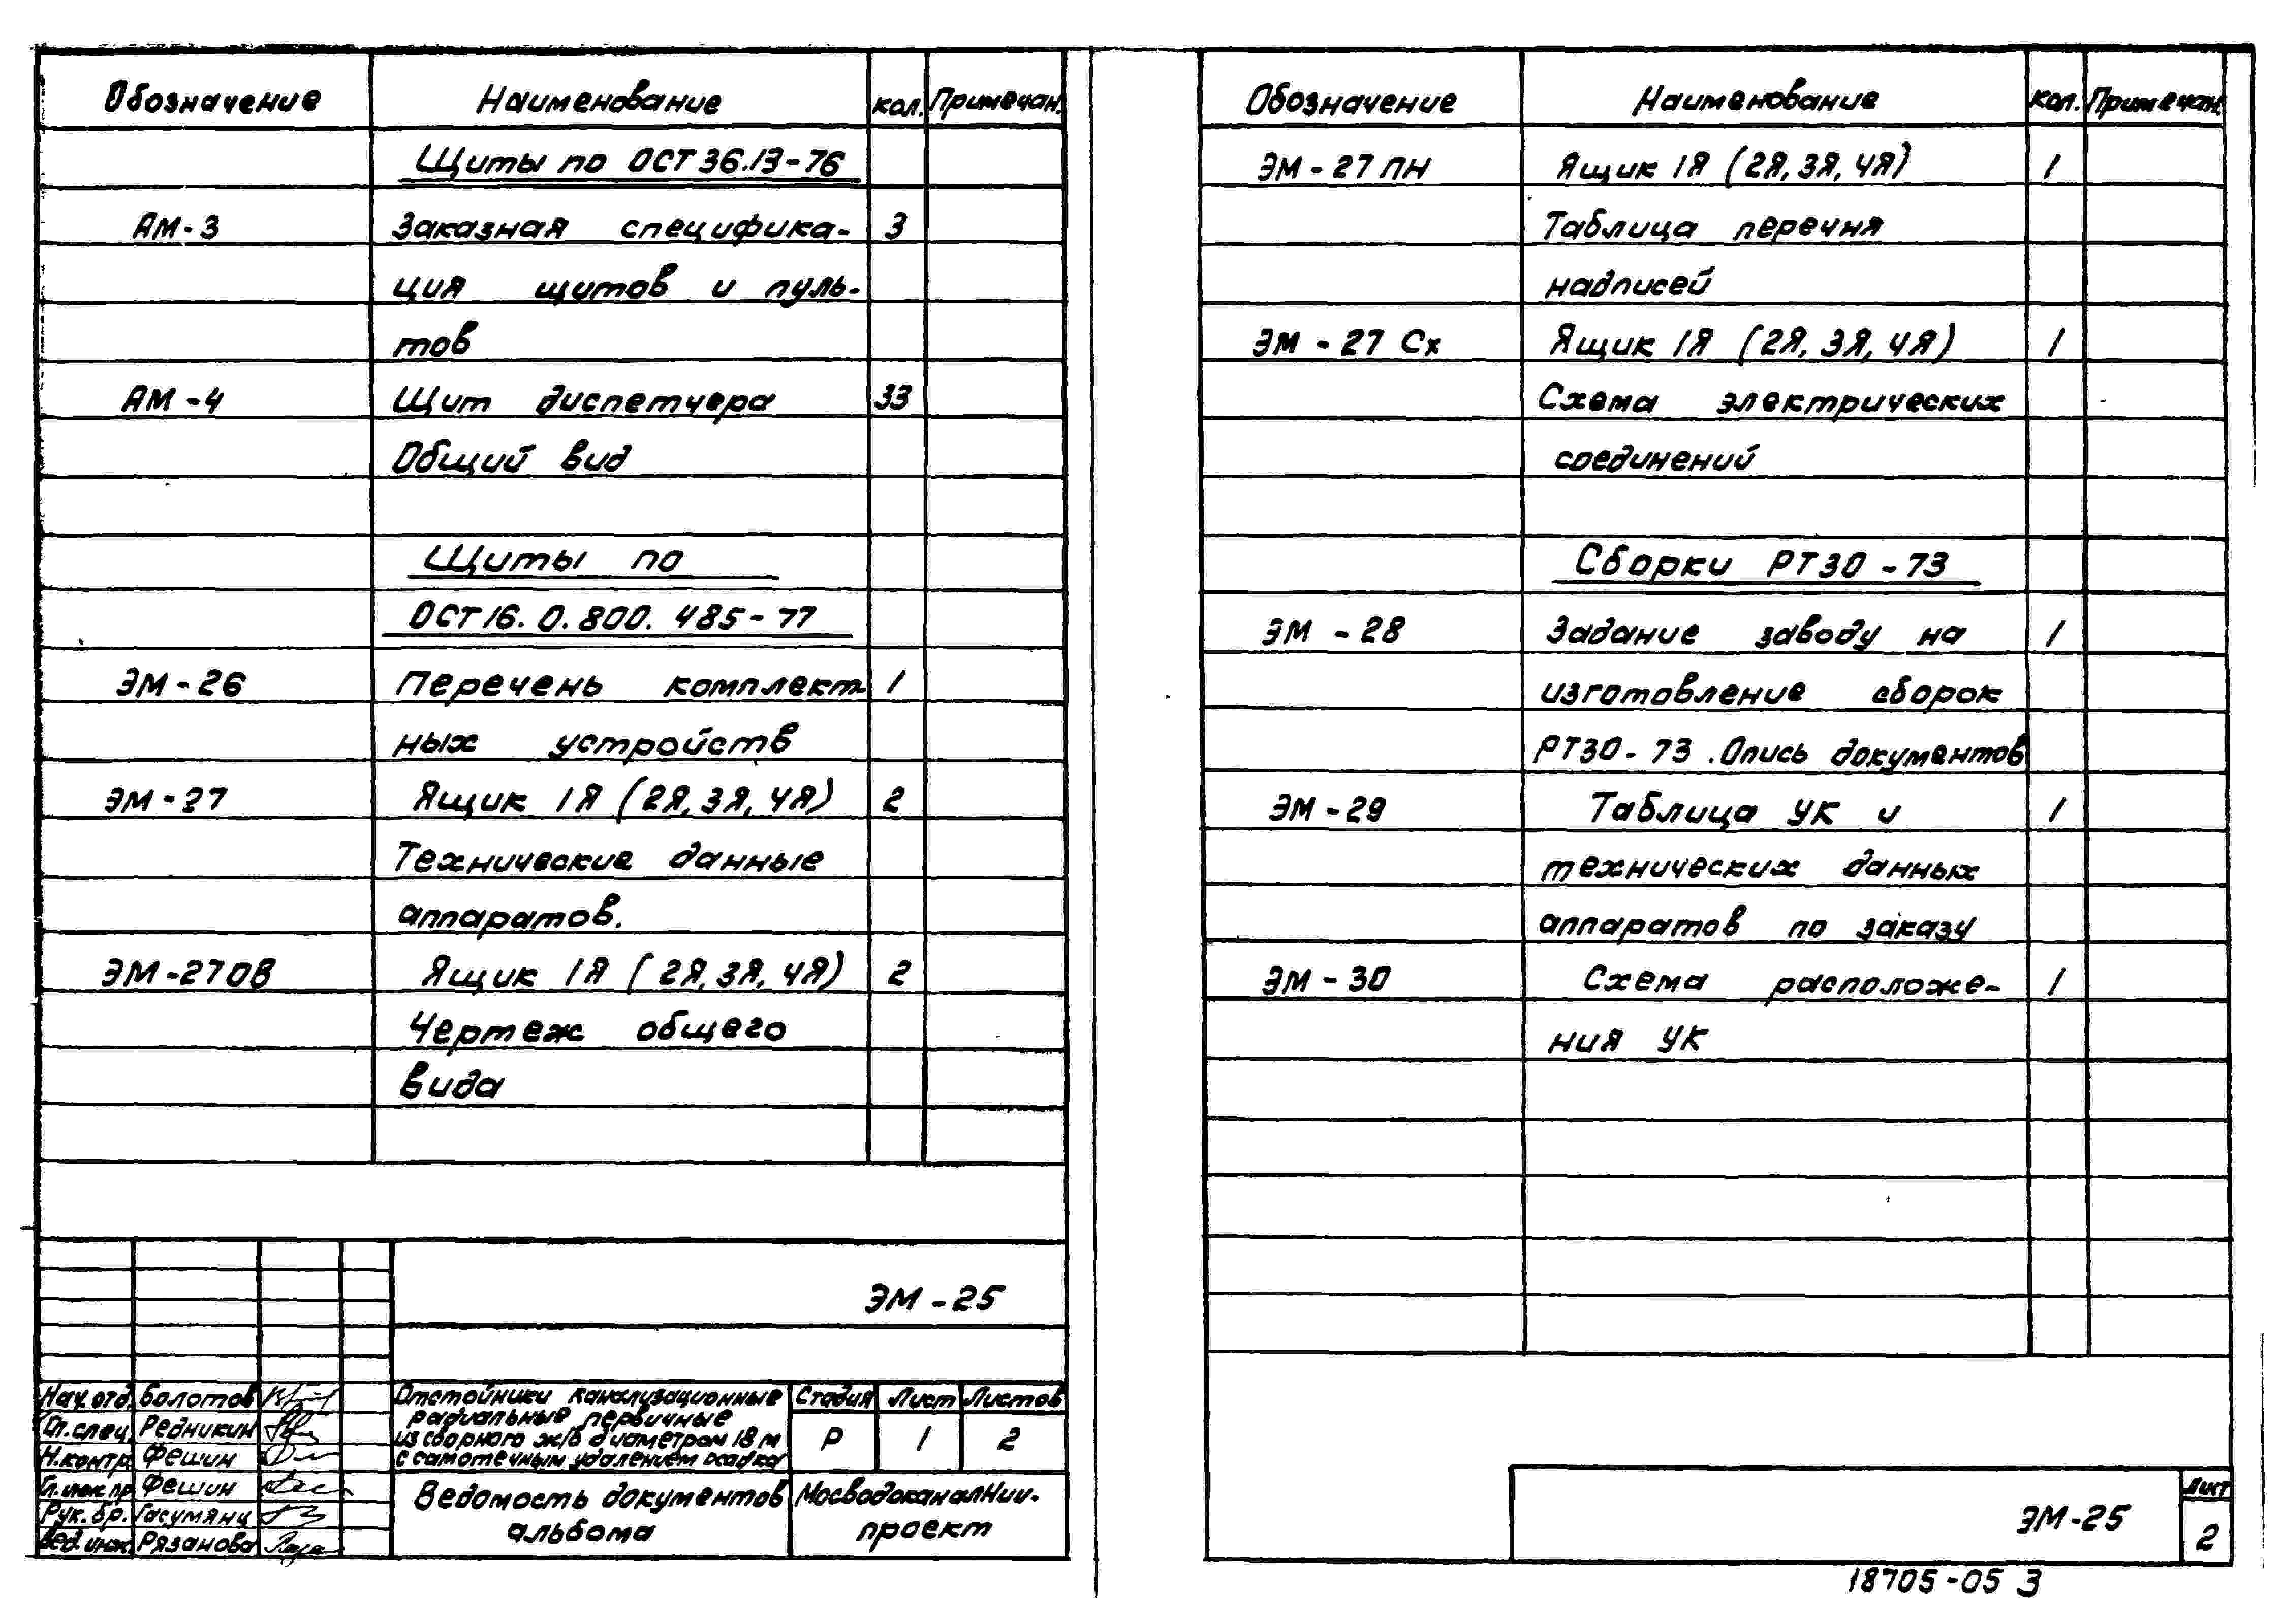 Обозначение Наименование кол. Примечан.
Щиты по ОСТ 36.13-76
АМ-3 Заказная специфика- 3
ция щитов и пуль-
тов
АМ-4 Щит диспетчера 33
Общий вид
Щиты по
ОСТ 16.0.800.485-77
ЭМ-26 Перечень комплект- 1
ных устройств
ЭМ-27 Ящик 1Я (2Я, 3Я, 4Я) 2
Технические данные
аппаратов.
ЭМ-27 ОВ Ящик 1Я (2Я, 3Я, 4Я) 2
Чертеж общего
вида
ЭМ-25
Нач. отд. Болотов
Гл. спец. Редникин
Н. контр. Фешин
Гл. инж. пр. Фешин
Рук. бр. Гасумянц
Вед. инж. Рязанова
Отстойники канализационные
радиальные первичные
из сборного ж/б диаметром 18 м
с самотечным удалением осадка
Стадия Лист Листов
Р 1 2
Ведомость документов
альбома
МосводоканалНИИ-
проект
Обозначение Наименование кол. Примечан.
ЭМ-27 ПН Ящик 1Я (2Я, 3Я, 4Я) 1
Таблица перечня
надписей
ЭМ-27 Сх Ящик 1Я (2Я, 3Я, 4Я) 1
Схема электрических
соединений
Сборки РТ30-73
ЭМ-28 Задание заводу на 1
изготовление сборок
РТ30-73. Опись документов
ЭМ-29 Таблица УК и 1
технических данных
аппаратов по заказу
ЭМ-30 Схема расположе- 1
ния УК
ЭМ-25
Лист
2
18705-05 3